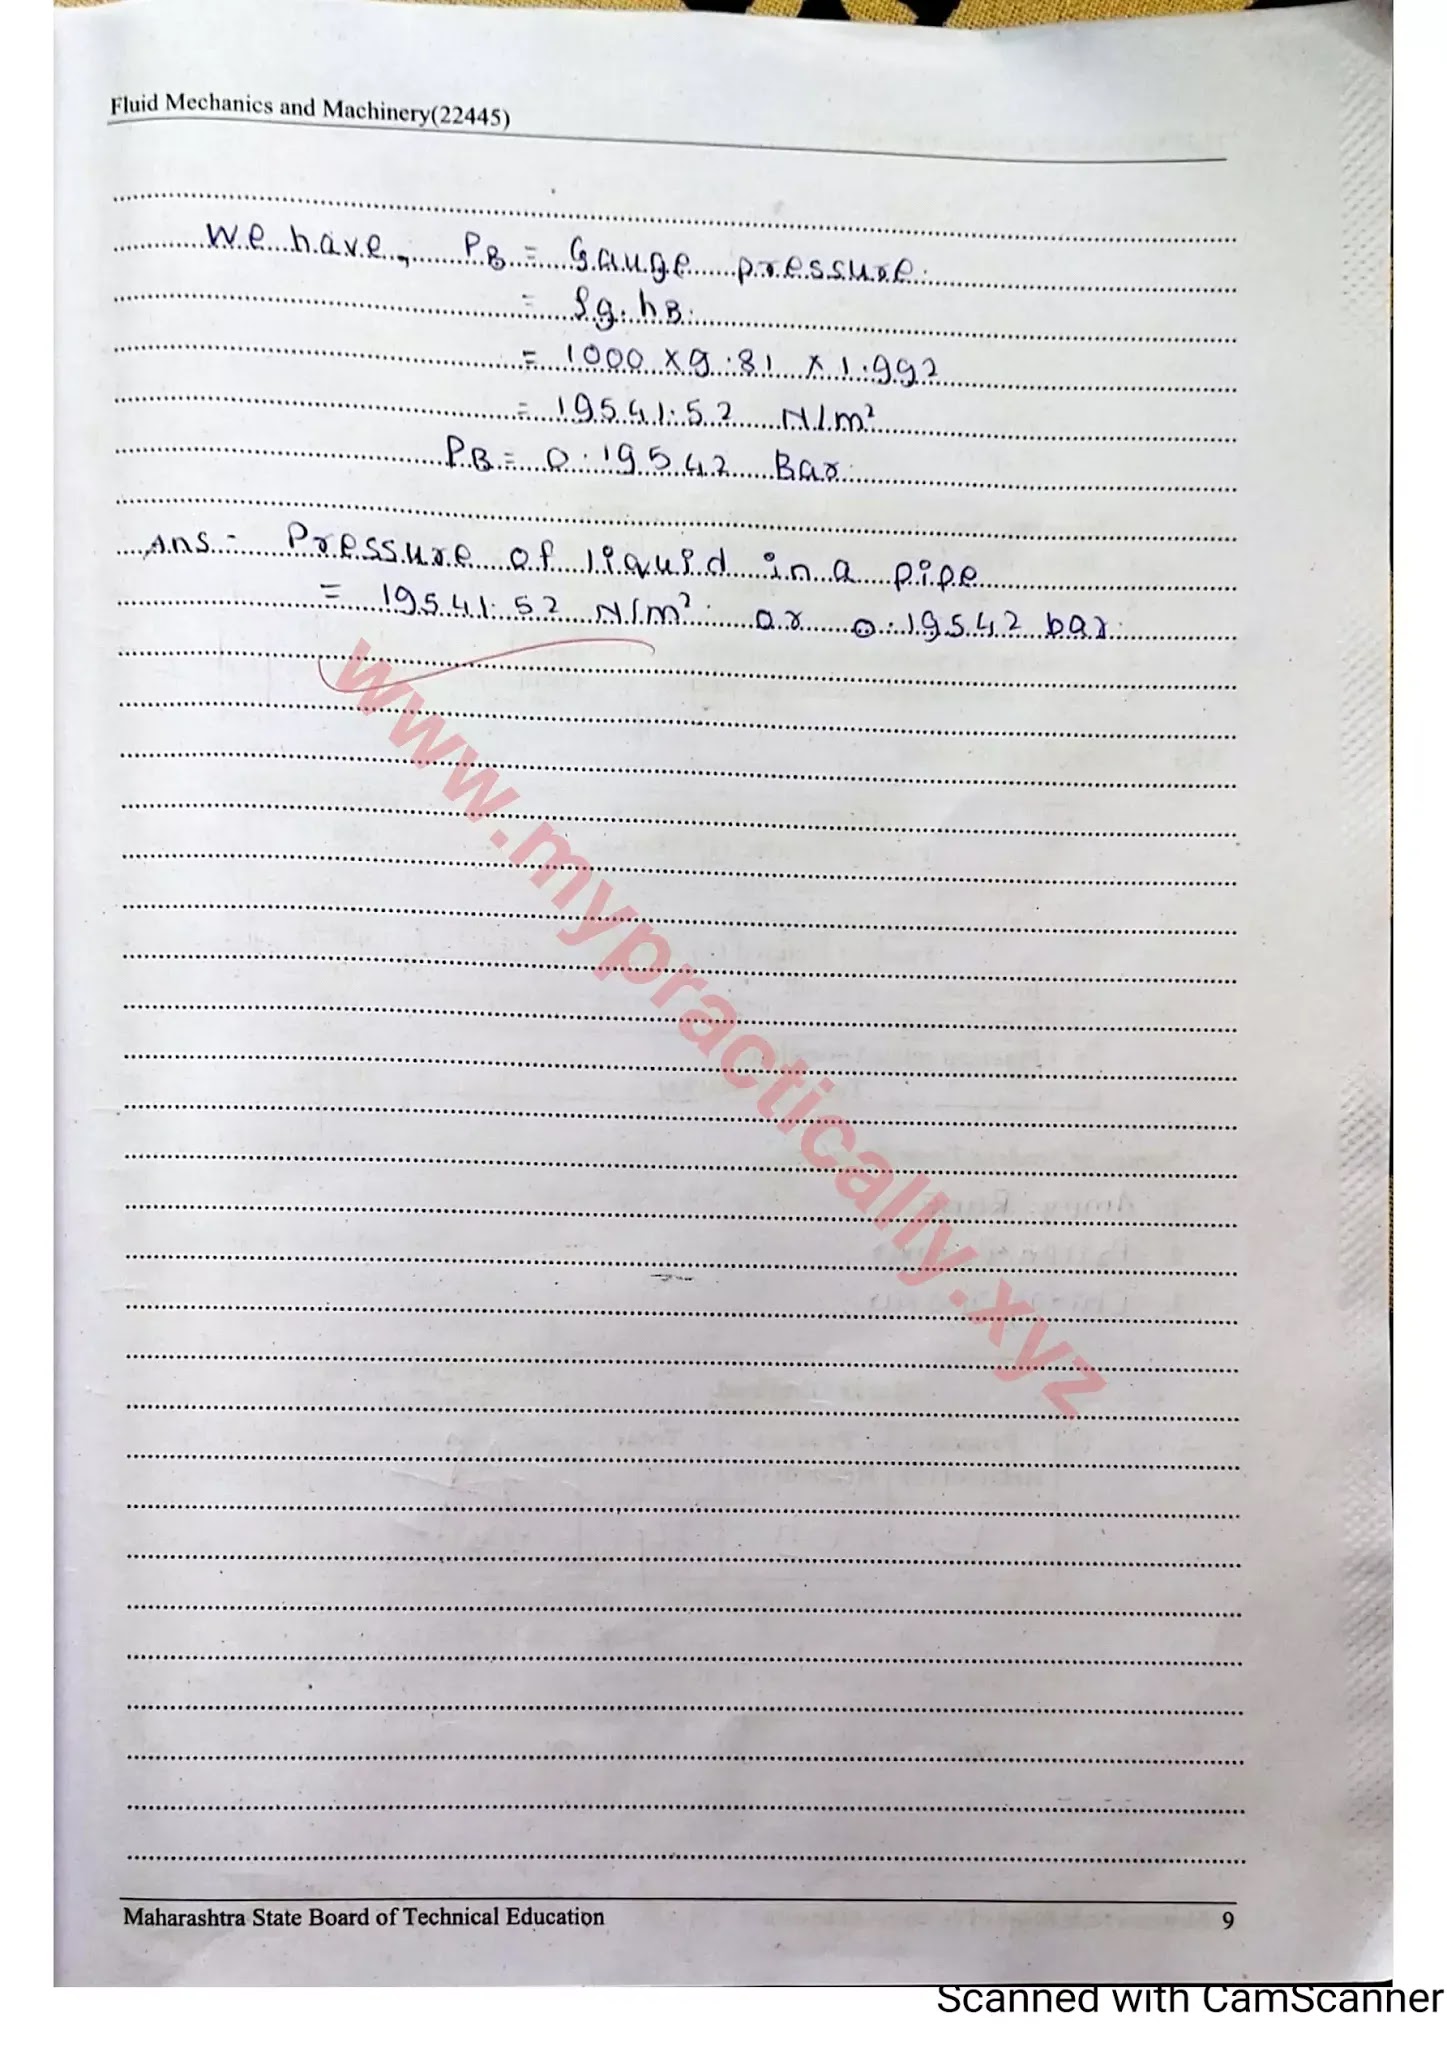 Fluid Mechanics and Machinery(22445)
We have, PB = Gauge pressure.
= ρg.hB.
= 1000 × 9.81 × 1.992
= 19541.52 N/m²
PB = 0.19542 Bar.
Ans - Pressure of liquid in a pipe
= 19541.52 N/m² or 0.19542 bar.
www.mypractically.xyz
Maharashtra State Board of Technical Education 9
Scanned with CamScanner